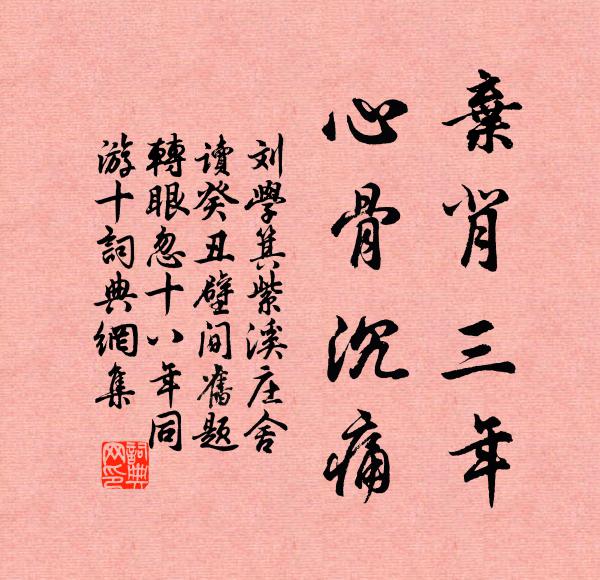 棄背三年
心骨沉痛
刘學箕紫溪庄舍
讀癸丑壁间舊題
轉眼忽十八年同
游十詞典網集
詞典
网印